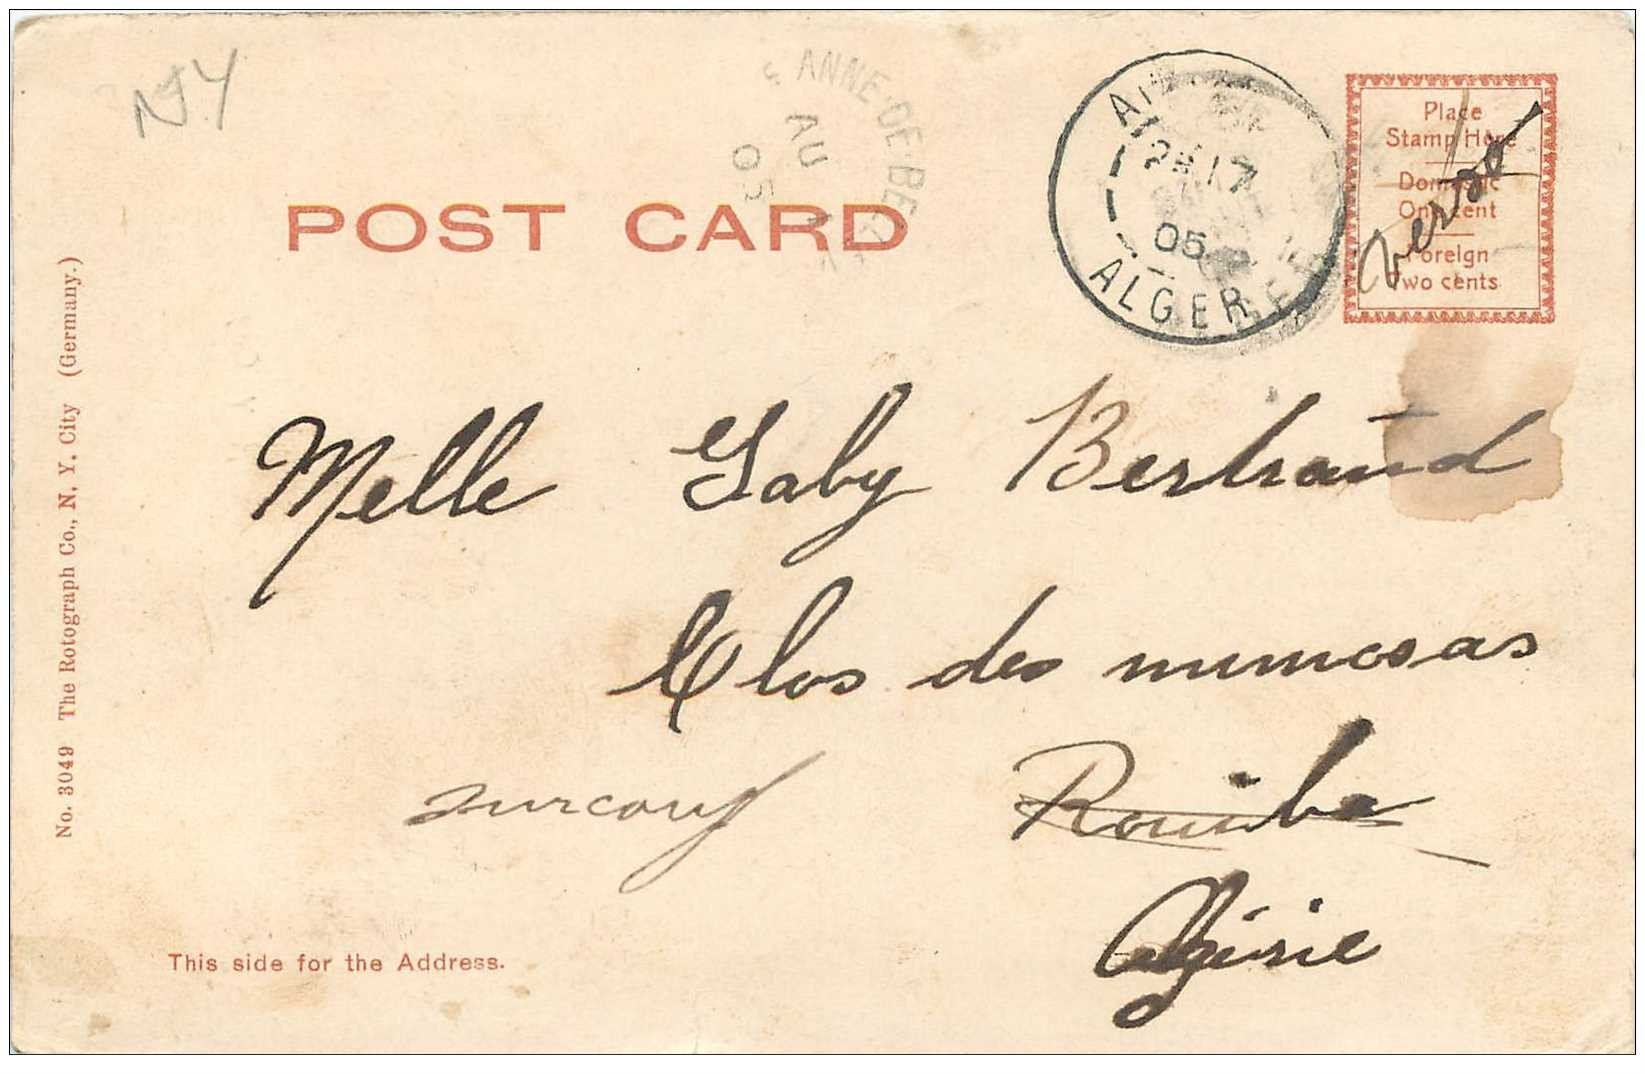 NY
ANNE-DE-BE
AU
05
POST CARD
17
05
ALGER
Place
Stamp Here
Domestic
One cent
Foreign
Two cents
verso
Melle Gaby Bertrand
Clos des mimosas
surcouf
Rouiba
Algérie
This side for the Address.
No. 3049 The Rotograph Co., N. Y. City (Germany.)